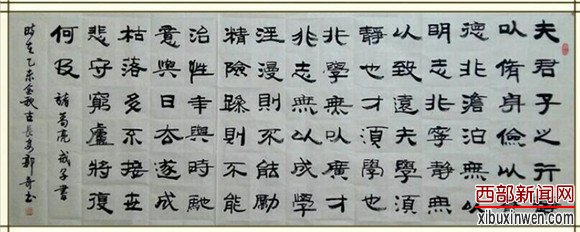 夫君子之行
以脩身儉以
德非澹泊無以
明志非寧靜無
以致遠夫學須
靜也才須學也
非學無以廣才
非志無以成學
淫漫則不能勵
精險躁則不能
治性年與時馳
意與日去遂成
枯落多不接世
悲守窮廬將復
何及 諸葛亮 戒子書
時在乙未金秋古長安郭奇书
西部新闻网
xibuxinwen.com